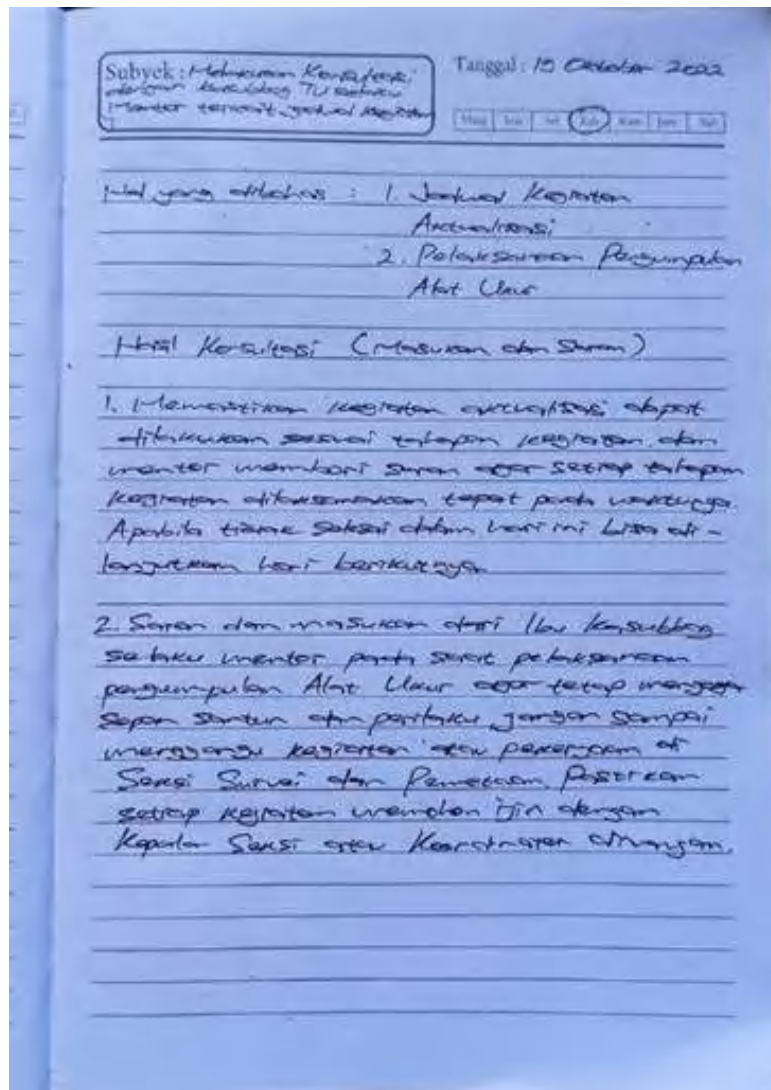 Subyek : Melakukan Konsultasi
dengan Kasubbag TU selaku
Mentor terkait jadwal kegiatan
Tanggal : Oktober 2022
Ming Sen Sel Rab Kam Jum Sab
Hal yang dibahas : 1. Jadwal Kegiatan
Aktualisasi
2. Pelaksanaan Pengumpulan
Alat Ukur
Hasil Konsultasi (Masukan dan Saran)
1. Memastikan kegiatan aktualisasi dapat
dilakukan sesuai tahapan kegiatan dan
mentor memberi saran agar setiap tahapan
kegiatan dilaksanakan tepat pada waktunya
Apabila tidak selesai dalam hari ini bisa di-
lanjutkan hari berikutnya
2. Saran dan masukan dari Ibu Kasubbag
selaku mentor pada saat pelaksanaan
pengumpulan Alat Ukur agar tetap menjaga
sopan santun dan perilaku jangan sampai
mengganggu kegiatan atau pekerjaan di
Seksi Survei dan Pemetaan. Pastikan
setiap kegiatan memohon ijin dengan
Kepala Seksi atau Koordinator diruangan.